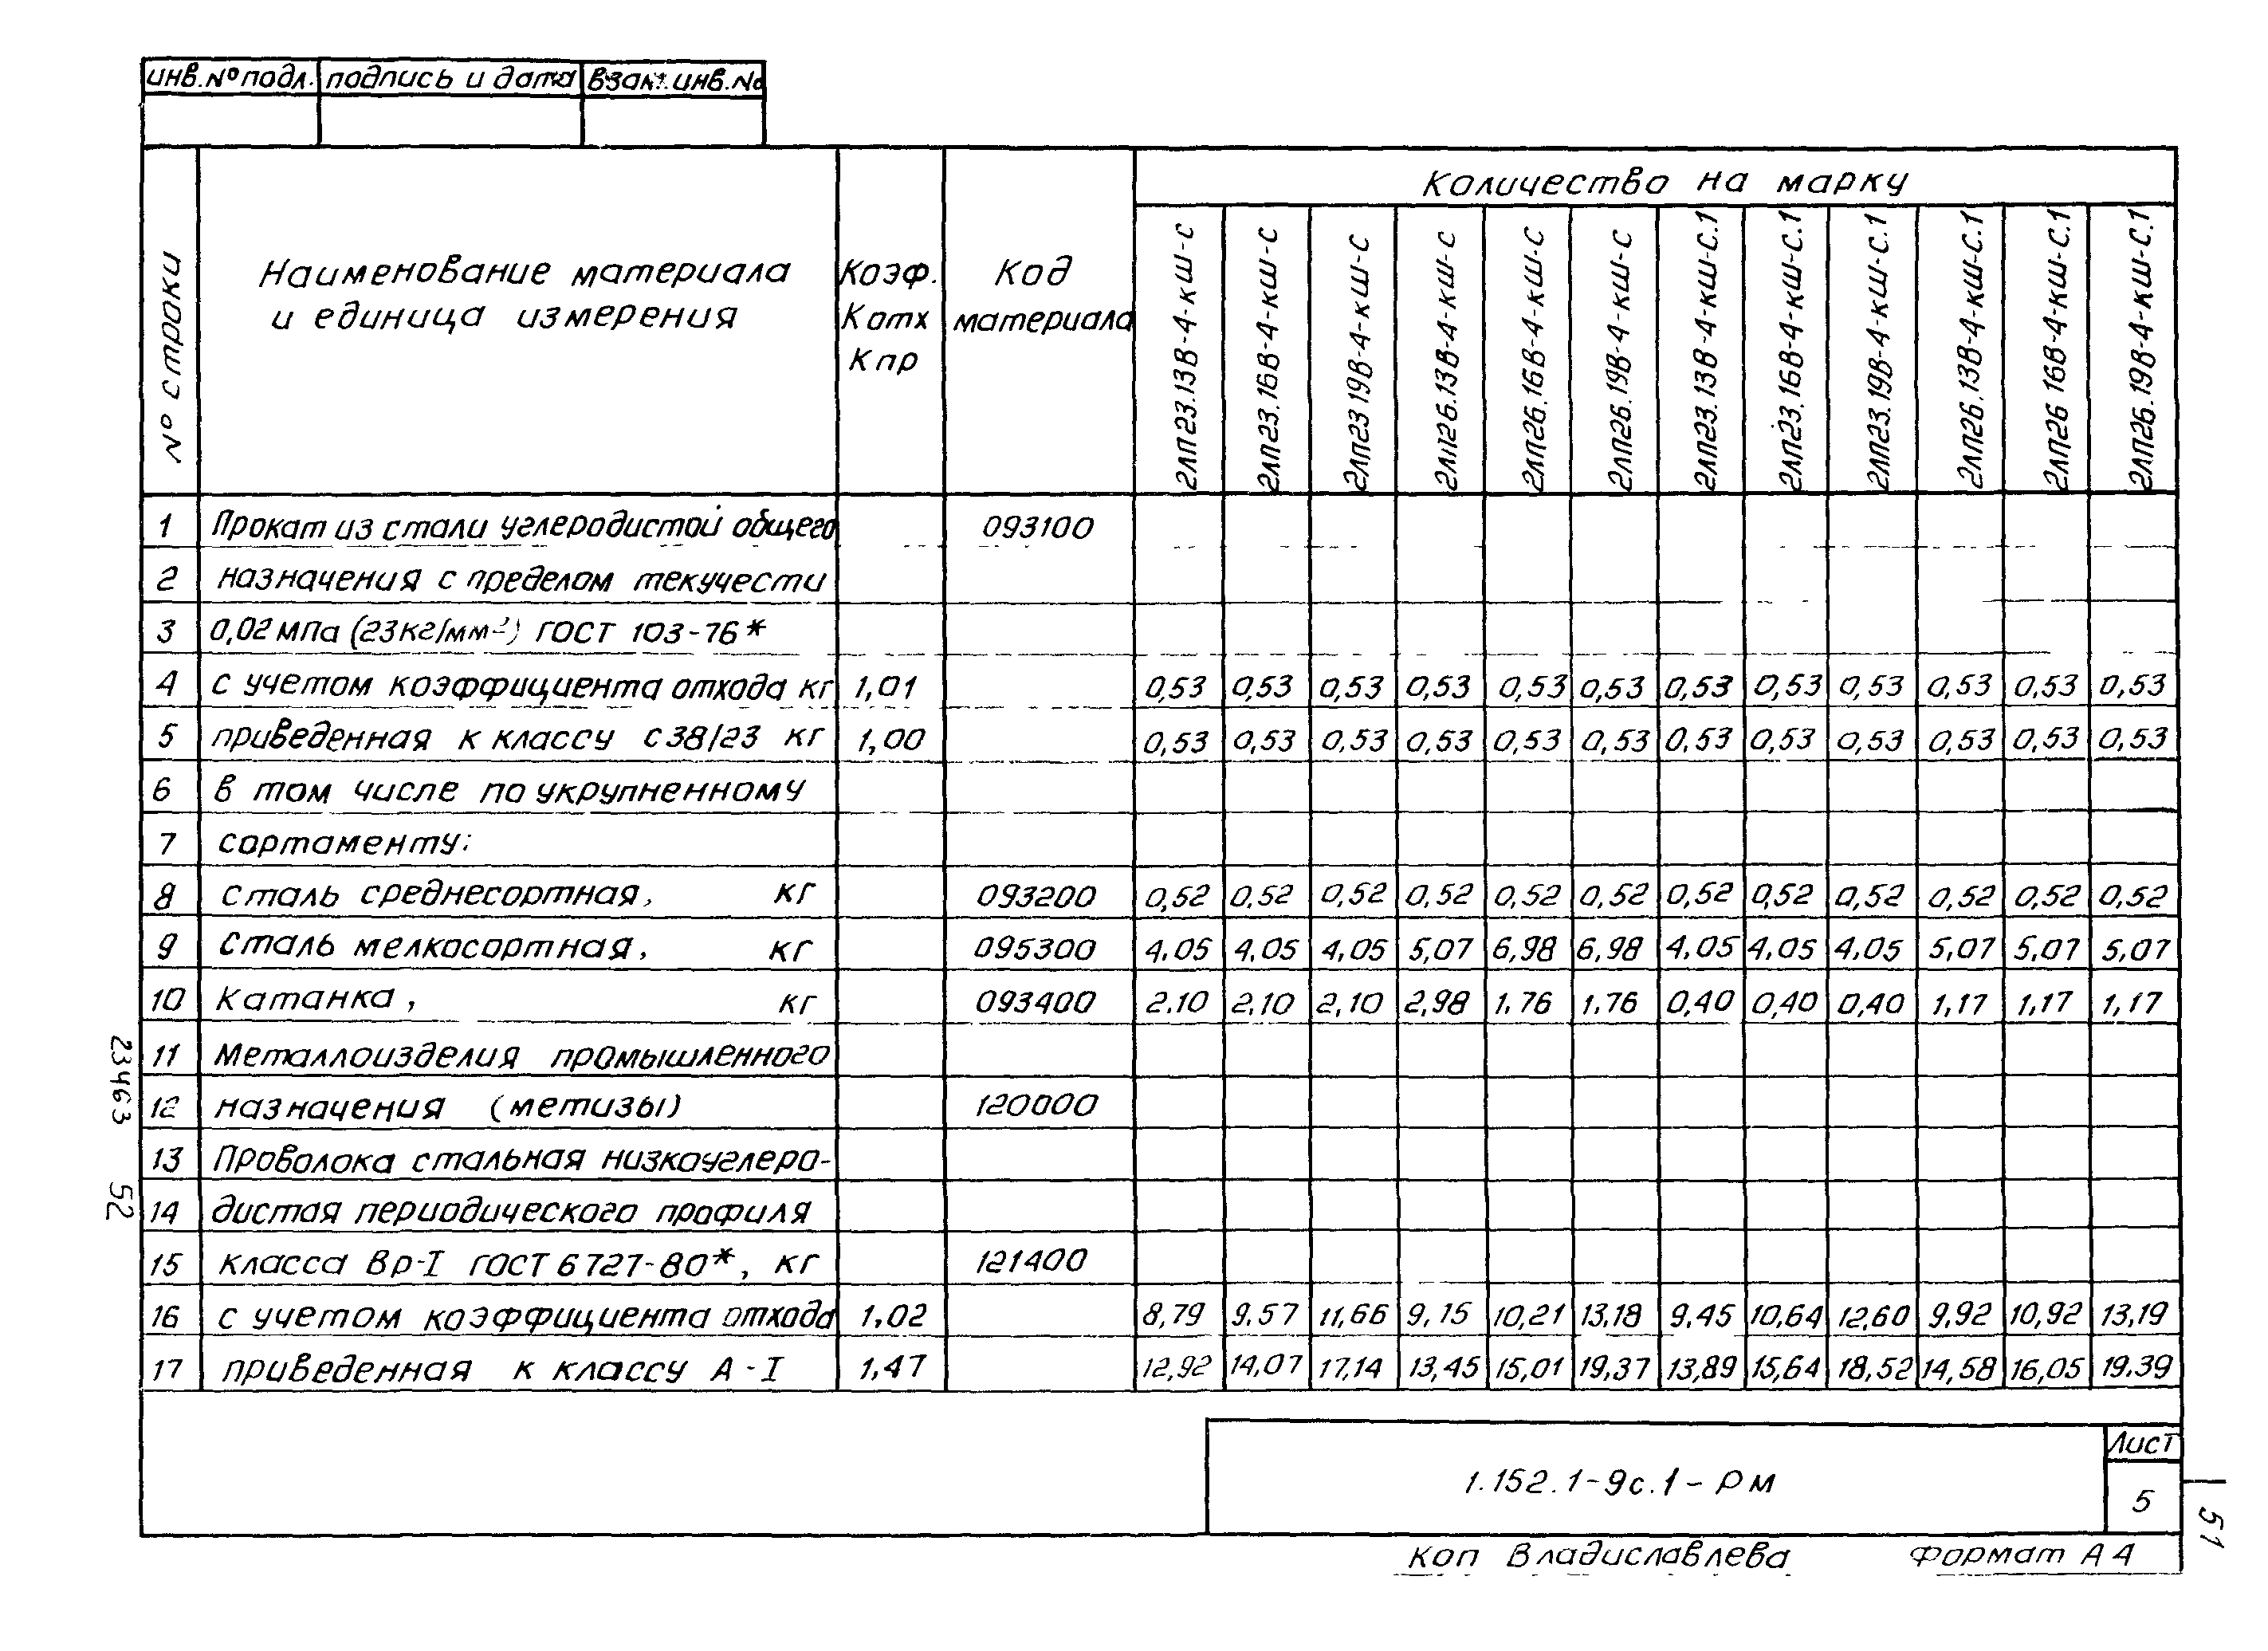 инв. № подл. подпись и дата взам. инв. №
Количество на марку
№ строки
Наименование материала
и единица измерения
Коэф.
Котх
Кпр
Код
материала
2ЛП23.13В-4-кш-с
2ЛП23.16В-4-кш-с
2ЛП23 19В-4-кш-с
2ЛП26.13В-4-кш-с
2ЛП26.16В-4-кш-с
2ЛП26.19В-4-кш-с
2ЛП23.13В-4-кш-с.1
2ЛП23.16В-4-кш-с.1
2ЛП23.19В-4-кш-с.1
2ЛП26.13В-4-кш-с.1
2ЛП26 16В-4-кш-с.1
2ЛП26.19В-4-кш-с.1
1 Прокат из стали углеродистой общего 093100
2 назначения с пределом текучести
3 0,02 МПа (23кг/мм²) ГОСТ 103-76*
4 с учетом коэффициента отхода кг 1,01 0,53 0,53 0,53 0,53 0,53 0,53 0,53 0,53 0,53 0,53 0,53 0,53
5 приведенная к классу с38/23 кг 1,00 0,53 0,53 0,53 0,53 0,53 0,53 0,53 0,53 0,53 0,53 0,53 0,53
6 в том числе по укрупненному
7 сортаменту:
8 сталь среднесортная, кг 093200 0,52 0,52 0,52 0,52 0,52 0,52 0,52 0,52 0,52 0,52 0,52 0,52
9 сталь мелкосортная, кг 095300 4,05 4,05 4,05 5,07 6,98 6,98 4,05 4,05 4,05 5,07 5,07 5,07
10 Катанка, кг 093400 2,10 2,10 2,10 2,98 1,76 1,76 0,40 0,40 0,40 1,17 1,17 1,17
11 Металлоизделия промышленного
12 назначения (метизы) 120000
13 Проволока стальная низкоуглеро-
14 дистая периодического профиля
15 класса Вр-I ГОСТ 6727-80*, кг 121400
16 с учетом коэффициента отхода 1,02 8,79 9,57 11,66 9,15 10,21 13,18 9,45 10,64 12,60 9,92 10,92 13,19
17 приведенная к классу А-I 1,47 12,92 14,07 17,14 13,45 15,01 19,37 13,89 15,64 18,52 14,58 16,05 19,39
23463 52
1.152.1-9с.1-РМ
Лист
5
51
Коп Владиславлева Формат А4